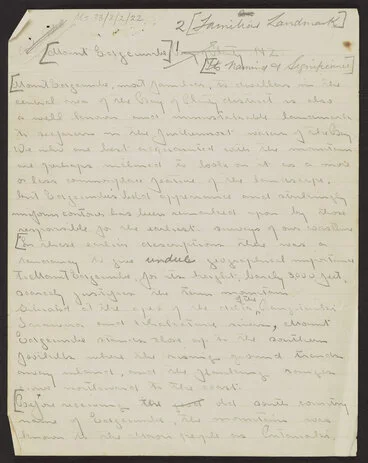 MS 73/2/2/22
2 [Familiar Landmark]
[Mount Edgecumbe]!
[Its Naming & Significance]
[Mount Edgecumbe, most familiar to dwellers in the
central area of the Bay of Plenty district is also
a well known and unmistakable landmark
to seafarers in the furthermost waters of the Bay
We who are best acquainted with the mountain
are perhaps inclined to look on it as a more
or less commonplace feature of the landscape,
but Edgecumbe's bold appearance and strikingly
uniform contour has been remarked upon by those
responsible for the earliest surveys of our coastline
[In these earlier descriptions there was a
tendency to give undue geographical importance
to Mount Edgecumbe, for its height, barely 3000 feet,
scarcely justifies the term mountain
Situated at the edge of the delta of the Rangitaiki
Tarawera and Whakatane rivers, Mount
Edgecumbe stands close up to the southern
foothills where the rising ground trends
away inland, and the flanking ranges
to the coast.
[Before receiving the old south country
name of Edgecumbe, the mountain was
known to the Maori people as Putauaki,